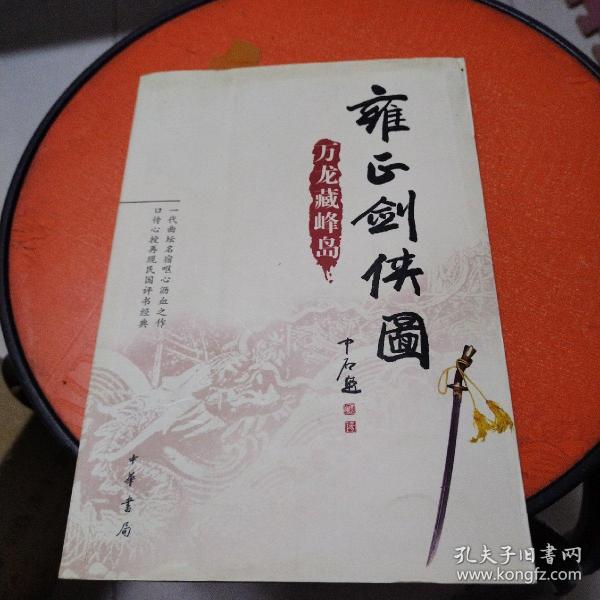 雍正剑侠圖
万龙藏峰岛
一代曲坛名宿呕心沥血之作
口传心授再现民国评书经典
中石题
中华书局
孔夫子旧书网
www.kongfz.com